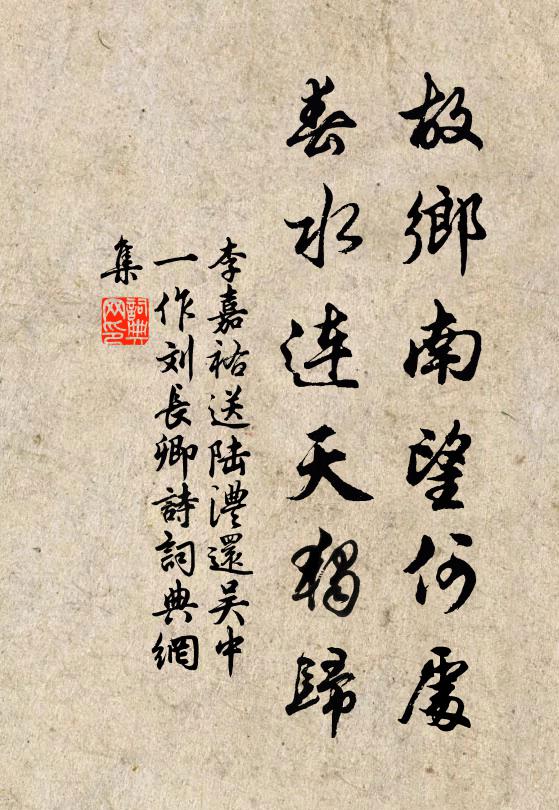 故鄉南望何處
春水连天獨歸
李嘉祐送陆澧還吴中
一作刘長卿詩詞典網
集
詞典
网印